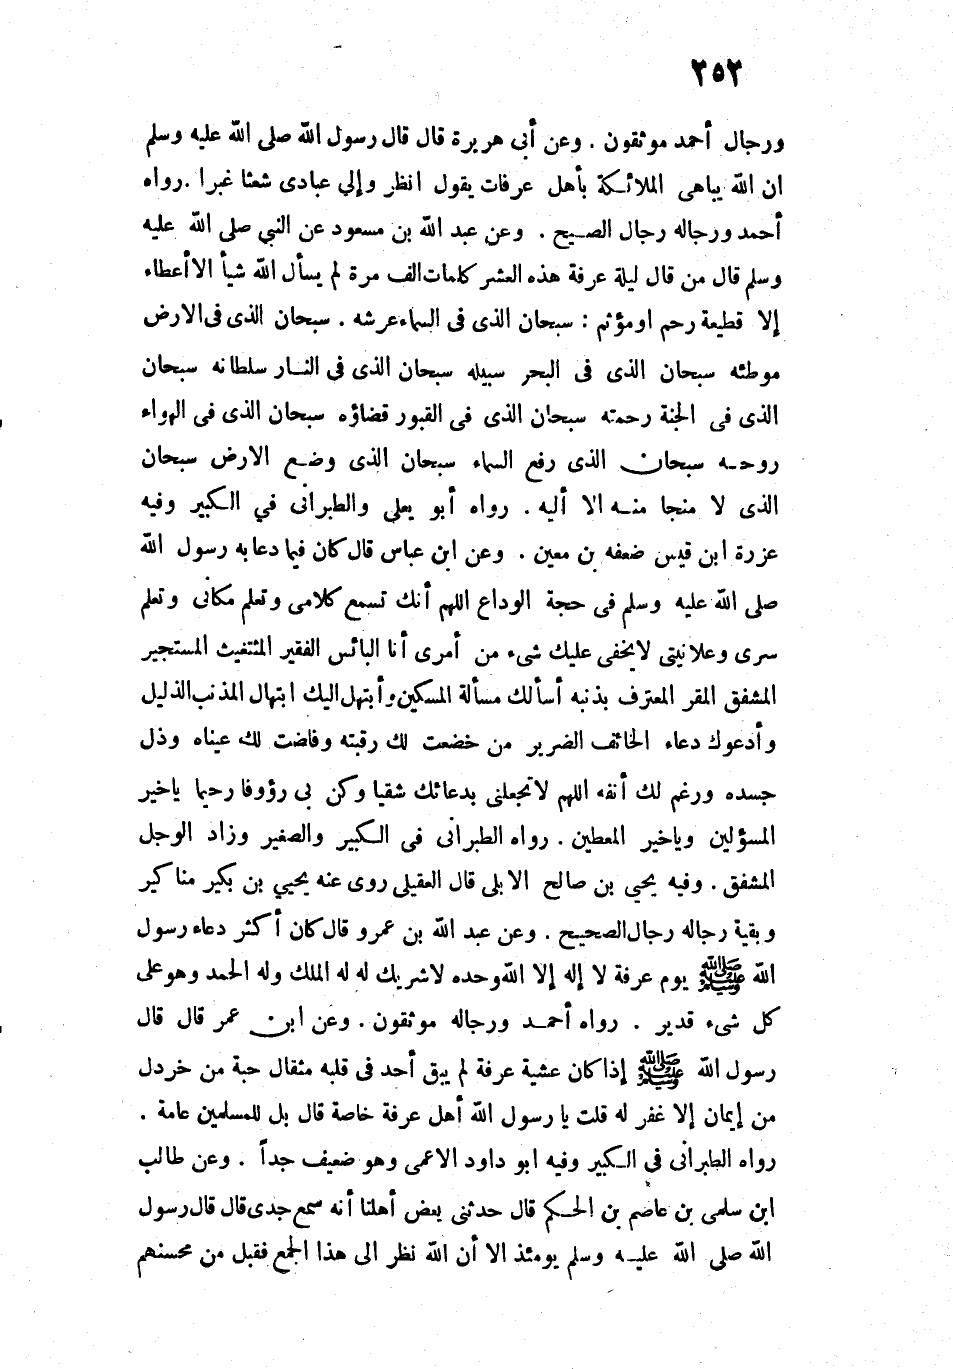 ٢٥٢
ورجال أحمد موثقون . وعن أبى هريرة قال قال رسول الله صلى الله عليه وسلم
ان الله يباهى الملائكة بأهل عرفات يقول انظر وإلى عبادى شعثا غبرا . رواه
أحمد ورجاله رجال الصحيح . وعن عبد الله بن مسعود عن النبي صلى الله عليه
وسلم قال من قال ليلة عرفة هذه العشر كلمات الف مرة لم يسأل الله شيأ الا أعطاه
إلا قطيعة رحم او مؤثم : سبحان الذى فى السماء عرشه . سبحان الذى فى الارض
موطئه سبحان الذى فى البحر سبيله سبحان الذى فى النار سلطانه سبحان
الذى فى الجنة رحمته سبحان الذى فى القبور قضاؤه سبحان الذى فى الهواء
روحه سبحان الذى رفع السماء سبحان الذى وضع الارض سبحان
الذى لا منجا منه الا أليه . رواه أبو يعلي والطبرانى في الكبير وفيه
عزرة ابن قيس ضعفه بن معين . وعن ابن عباس قال كان فيما دعا به رسول الله
صلى الله عليه وسلم فى حجة الوداع اللهم أنك تسمع كلامى وتعلم مكانى وتعلم
سرى وعلانيتى لا يخفى عليك شىء من أمرى أنا البائس الفقير المثتفيث المستجير
المشفق المقر المعترف بذنبه أسألك مسألة المسكين وأبتهل اليك ابتهال المذنب الذليل
وأدعوك دعاء الخائف الضرير من خضعت لك رقبته وفاضت لك عيناه وذل
جسده ورغم لك أنفه اللهم لا تجعلنى بدعائك شقيا وكن بى رؤوفا رحيما ياخير
المسؤلين وياخير المعطين . رواه الطبرانى فى الكبير والصغير وزاد الوجل
المشفق . وفيه يحيى بن صالح الابلى قال العقيلى روى عنه يحيي بن بكير مناكير
وبقية رجاله رجال الصحيح . وعن عبد الله بن عمرو قال كان أكثر دعاء رسول
الله ﷺ يوم عرفة لا إله إلا الله وحده لا شريك له له الملك وله الحمد وهو على
كل شىء قدير . رواه أحمد ورجاله موثقون . وعن ابن عمر قال قال
رسول الله ﷺ إذا كان عشية عرفة لم يبق أحد فى قلبه مثقال حبة من خردل
من إيمان إلا غفر له قلت يا رسول الله أهل عرفة خاصة قال بل للمسلمين عامة .
رواه الطبرانى في الكبير وفيه ابو داود الاعمى وهو ضعيف جداً . وعن طالب
ابن سلمى بن عاصم بن الحكم قال حدثنى بعض أهلنا أنه سمع جدى قال قال رسول
الله صلى الله عليه وسلم يومئذ الا أن الله نظر الى هذا الجمع فقبل من محسنهم